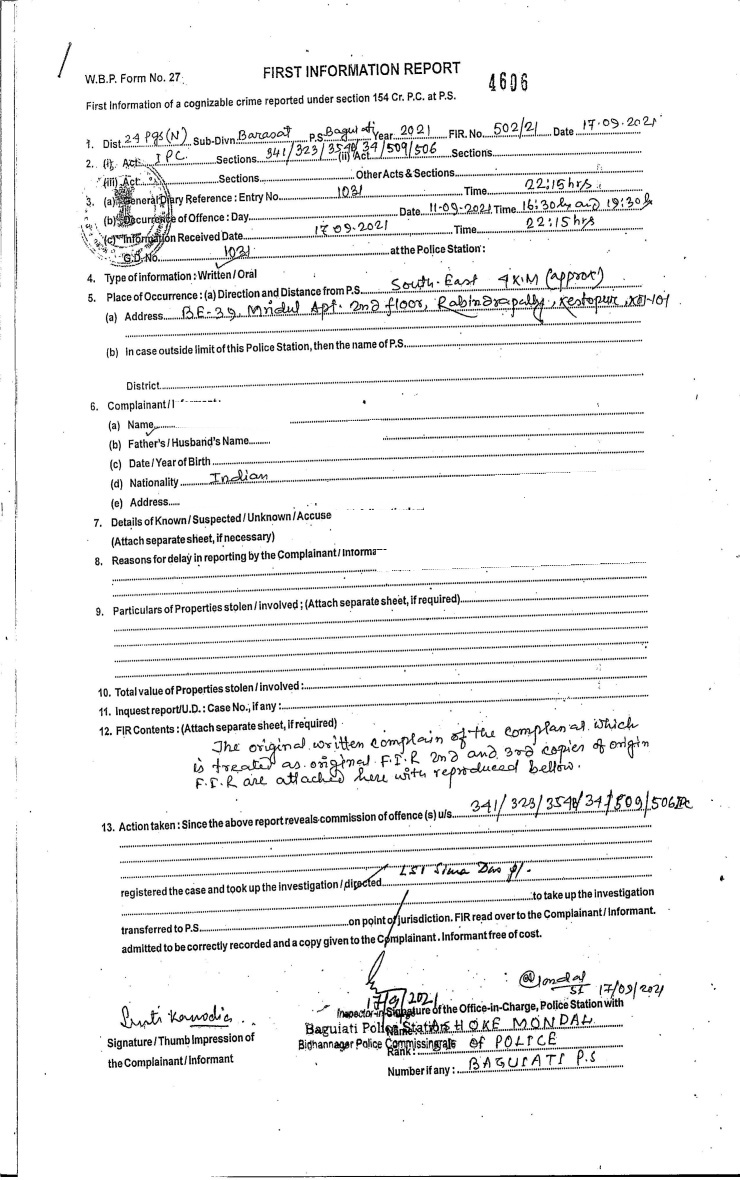 W.B.P. Form No. 27
FIRST INFORMATION REPORT
4606
First Information of a cognizable crime reported under section 154 Cr. P.C. at P.S.
1. Dist. 24 Pgs (N) Sub-Divn. Barasat P.S. Baguiati Year 2021 FIR. No. 502/21 Date 17.09.2021
2. (i) Act IPC Sections 341/323/354B/34/509/506 (ii) Act Sections
(iii) Act Sections Other Acts & Sections
3. (a) General Diary Reference : Entry No. 1031 Time 22:15 hrs
(b) Occurrence of Offence : Day Date 11-09-2021 Time 16:30 and 19:30
(c) Information Received Date 17.09.2021 Time 22:15 hrs
G.D. No. 1031 at the Police Station :
4. Type of information : Written / Oral
5. Place of Occurrence : (a) Direction and Distance from P.S. South-East 4 K.M (approx)
(a) Address BE-39, Mridul Apt. 2nd floor, Rabindrapally, Kestopur, Kol-101
(b) In case outside limit of this Police Station, then the name of P.S.
District
6. Complainant /
(a) Name
(b) Father's / Husband's Name
(c) Date / Year of Birth
(d) Nationality Indian
(e) Address
7. Details of Known / Suspected / Unknown / Accuse
(Attach separate sheet, if necessary)
8. Reasons for delay in reporting by the Complainant / Informa
9. Particulars of Properties stolen / involved ; (Attach separate sheet, if required)
10. Total value of Properties stolen / involved :
11. Inquest report / U.D. : Case No., if any :
12. FIR Contents : (Attach separate sheet, if required)
The original written complain of the complanat which
is treated as original F.I.R 2nd and 3rd copies of origin
F.I.R are attached here with reproduced bellow.
13. Action taken : Since the above report reveals commission of offence (s) u/s. 341/323/354B/34/509/506 IPC
registered the case and took up the investigation / directed LSI Sima Das
to take up the investigation
transferred to P.S. on point of jurisdiction. FIR read over to the Complainant / Informant.
admitted to be correctly recorded and a copy given to the Complainant. Informant free of cost.
17/9/2021
Mondal
SI 17/09/2021
Signature of the Office-in-Charge, Police Station with
Baguiati Police Station
Name : ASHOKE MONDAL
Bidhannagar Police Commissionerate
Rank : SI of POLICE
Number if any : BAGUIATI P.S
Signature / Thumb Impression of
the Complainant / Informant